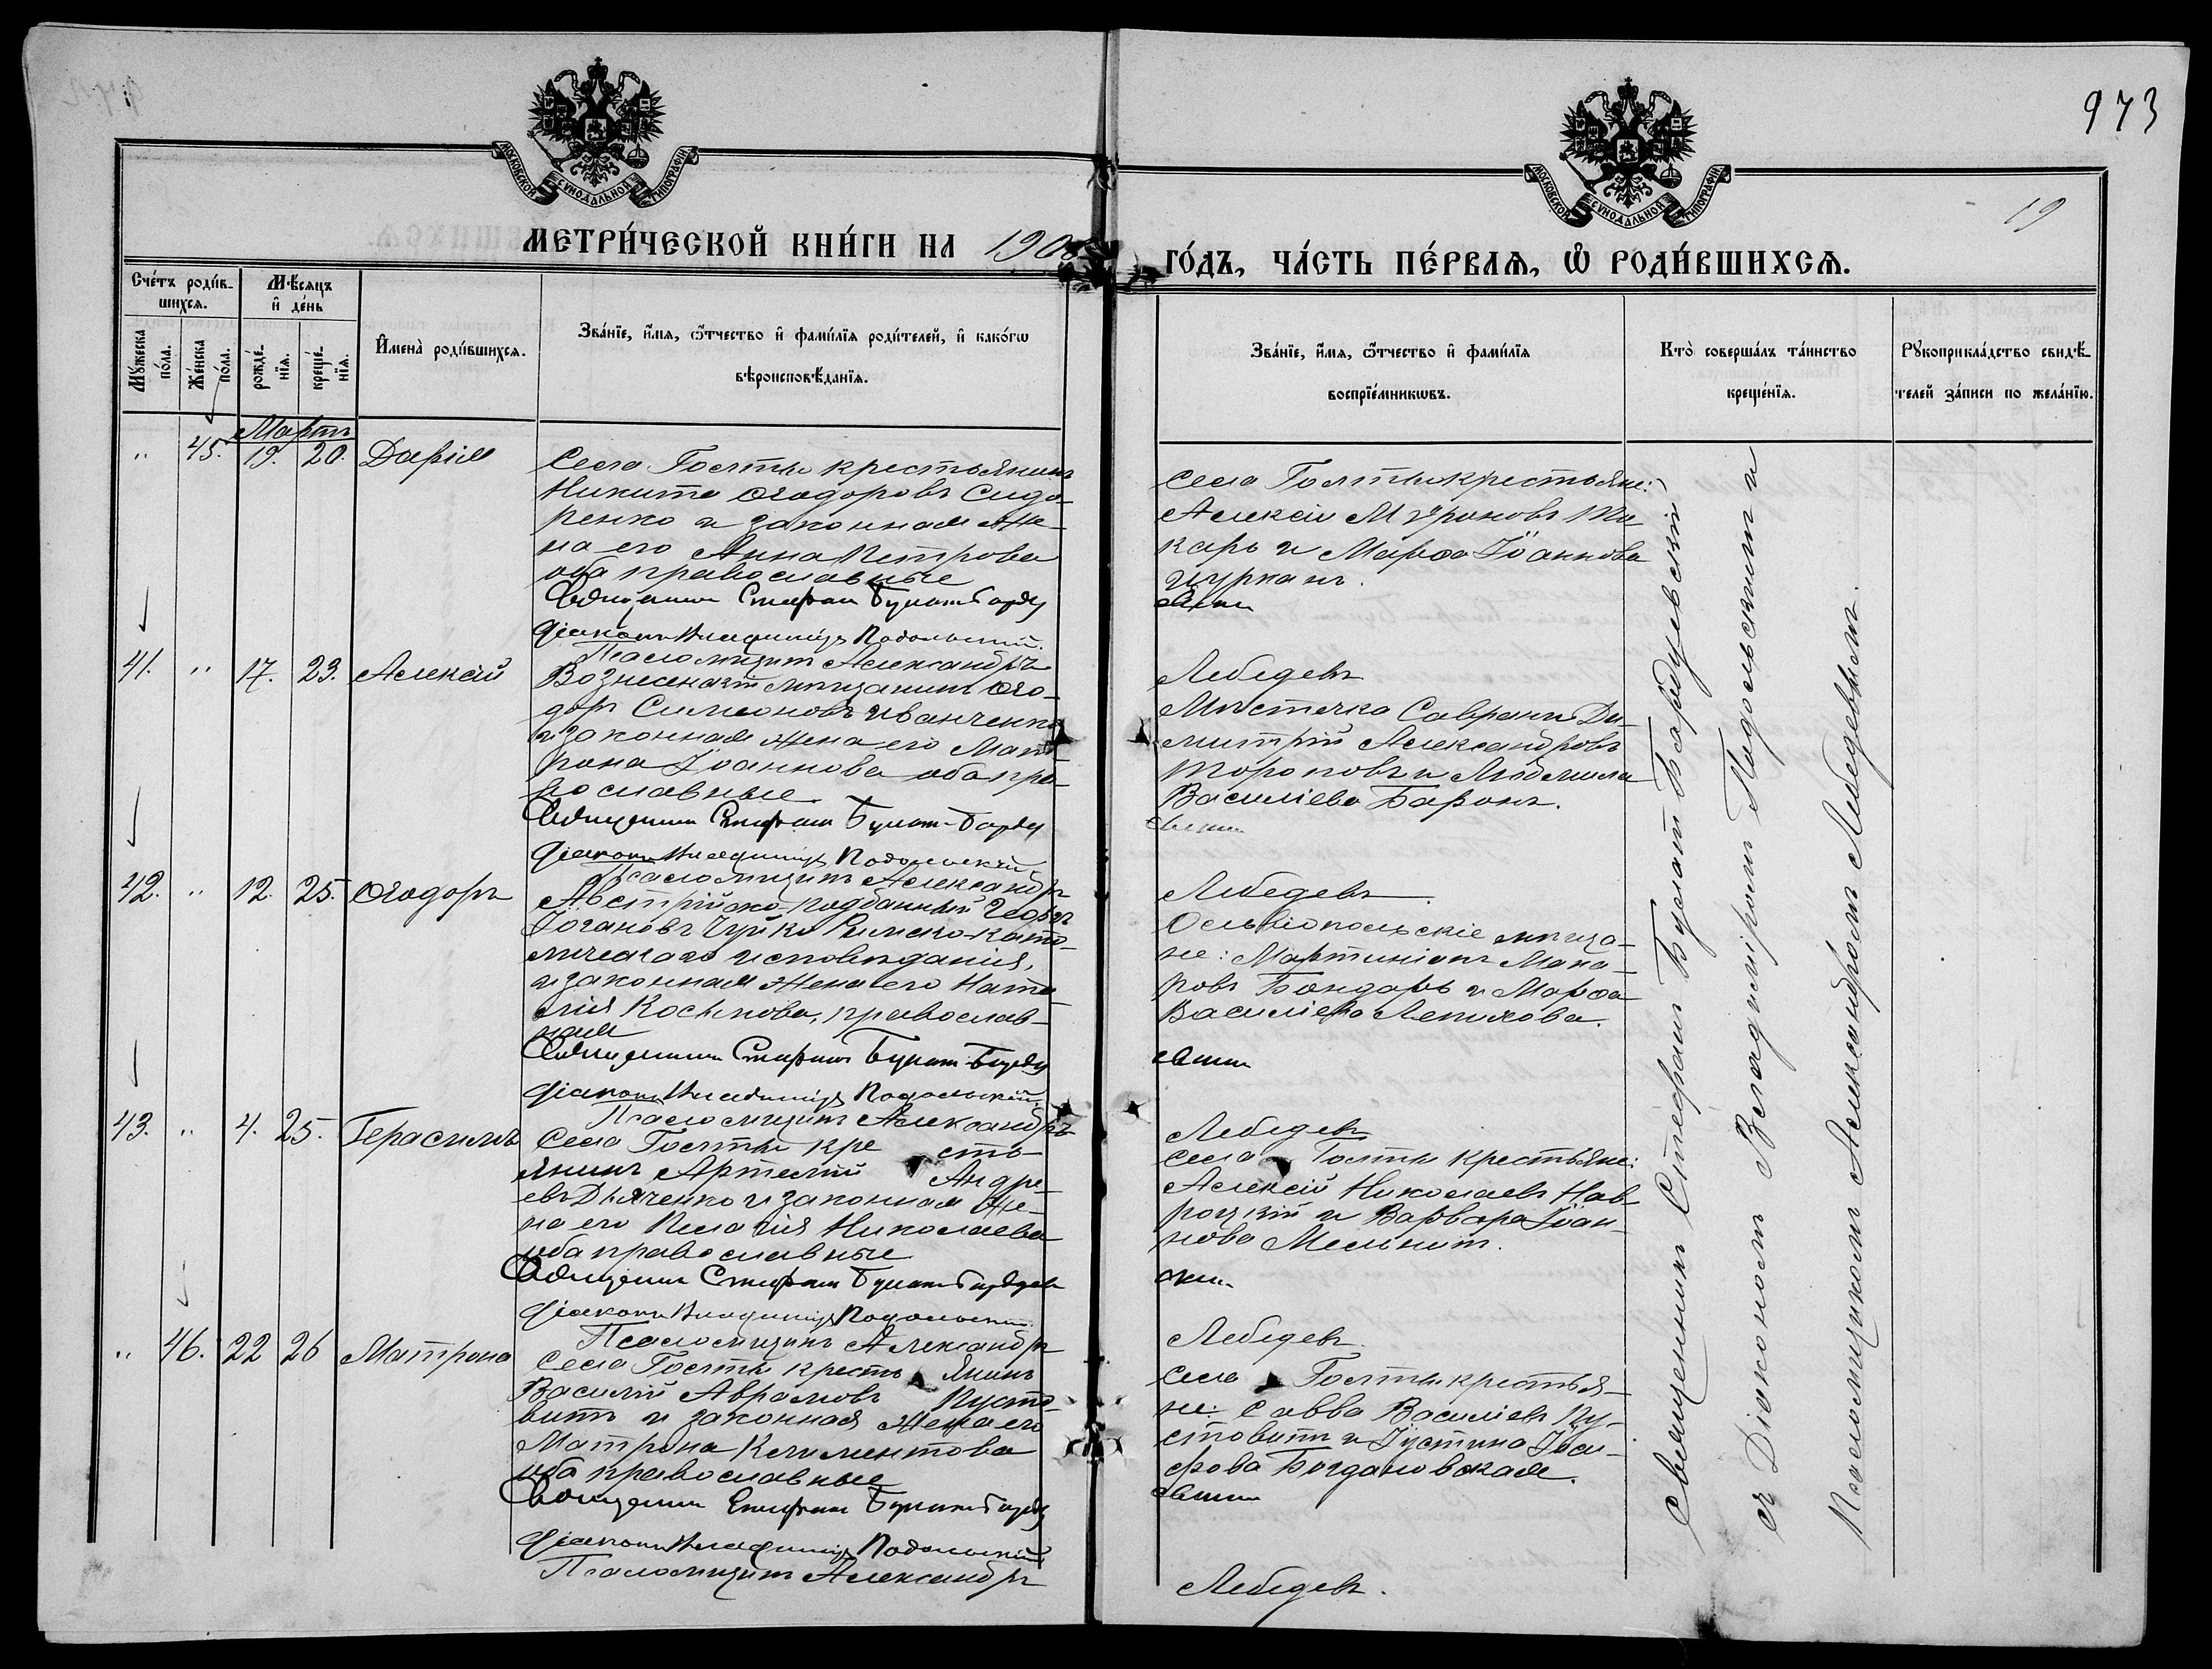 973
19
МОСКОВСКОЙ СѴНОДАЛЬНОЙ ТИПОГРАФІИ
МОСКОВСКОЙ СѴНОДАЛЬНОЙ ТИПОГРАФІИ
МЕТРИ́ЧЕСКОЙ КНИ́ГИ НА 190
ГО́ДЪ, ЧА́СТЬ ПЕ́РВАЯ, Ѡ РОДИ́ВШИХСЯ.
Сче́тъ роди́в-
шихся.
Мꙋжеска по́ла.
Же́нска по́ла.
Мѣ́сяцъ
и де́нь
рожде́-
нїя.
креще́-
нїя.
Имена̀ роди́вшихся.
Зва́нїе, и́мя, ѻ́тчество и фами́лїя роди́телей, и како́гѡ
вѣроисповѣ́данїя.
Зва́нїе, и́мя, ѻ́тчество и фами́лїя
воспрїе́мникѡвъ.
Кто̀ соверша́лъ та́инство
креще́нїя.
Рꙋкоприкла́дство свидѣ́-
телей за́писи по жела́нїю.
Мартъ
" 45. 19. 20. Дарія
Села Голты крестьянинъ
Никита Ѳеодоровъ Сидо-
ренко и законная же-
на его Анна Петрова
оба православные
Священникъ Стефанъ Булатъ-Барду
Діаконъ Владиміръ Подольскій.
Псаломщикъ Александръ
Села Голты крестьяне:
Алексій Мѵроновъ То-
карь и Марѳа Іоаннова
Цурканъ.
евскій
Лебедевъ
41. " 17. 23. Алексій
Вознесенскій мѣщанинъ Ѳео-
доръ Симеоновъ Иванченко
и законная жена его Мат-
рона Іоаннова оба пра-
вославные
Священникъ Стефанъ Булатъ-Барду
Діаконъ Владиміръ Подольскій
Псаломщикъ Александръ
Мѣстечка Саврани Ди-
митрій Александровъ
Тороповъ и Людмила
Василіева Баронъ.
евскій
Лебедевъ
42. " 12. 25. Ѳеодоръ
Австрійско-подданный Георгъ
Іогановъ Чуйко Римско-като-
лическаго исповѣданія,
и законная жена его Ната-
лія Косьмова, православ-
ная
Священникъ Стефанъ Булатъ-Барду
Діаконъ Владиміръ Подольскій.
Псаломщикъ Александръ
Ольвіопольскіе мѣща-
не: Мартиніанъ Мака-
ровъ Бондарь и Марѳа
Василіева Лепихова.
евскій
Лебедевъ
43. " 4. 25. Герасимъ
Села Голты кресть-
янинъ Артемій Андре-
евъ Дьяченко и законная же-
на его Пелагія Николаева
оба православные
Священникъ Стефанъ Булатъ-Бардуев
Діаконъ Владиміръ Подольскій.
Псаломщикъ Александръ
Села Голты крестьяне:
Алексій Николаевъ Нав-
роцкій и Варвара Іоан-
нова Мельникъ.
скій
Лебедевъ.
" 46. 22 26 Матрона
Села Голты крестьянинъ
Василій Аврамовъ Пусто-
витъ и законная жена его
Матрона Климентова
оба православные
Священникъ Стефанъ Булатъ-Барду
Діаконъ Владиміръ Подольскій
Псаломщикъ Александръ
Села Голты крестья-
не: Савва Василіевъ Пу-
стовитъ и Іустина Іоси-
фова Богдановская.
евскій
Лебедевъ.
Священникъ Стефанъ Булатъ-Бардуевскій
съ Діакономъ Владиміромъ Подольскимъ и
Псаломщикомъ Александромъ Лебедевымъ.